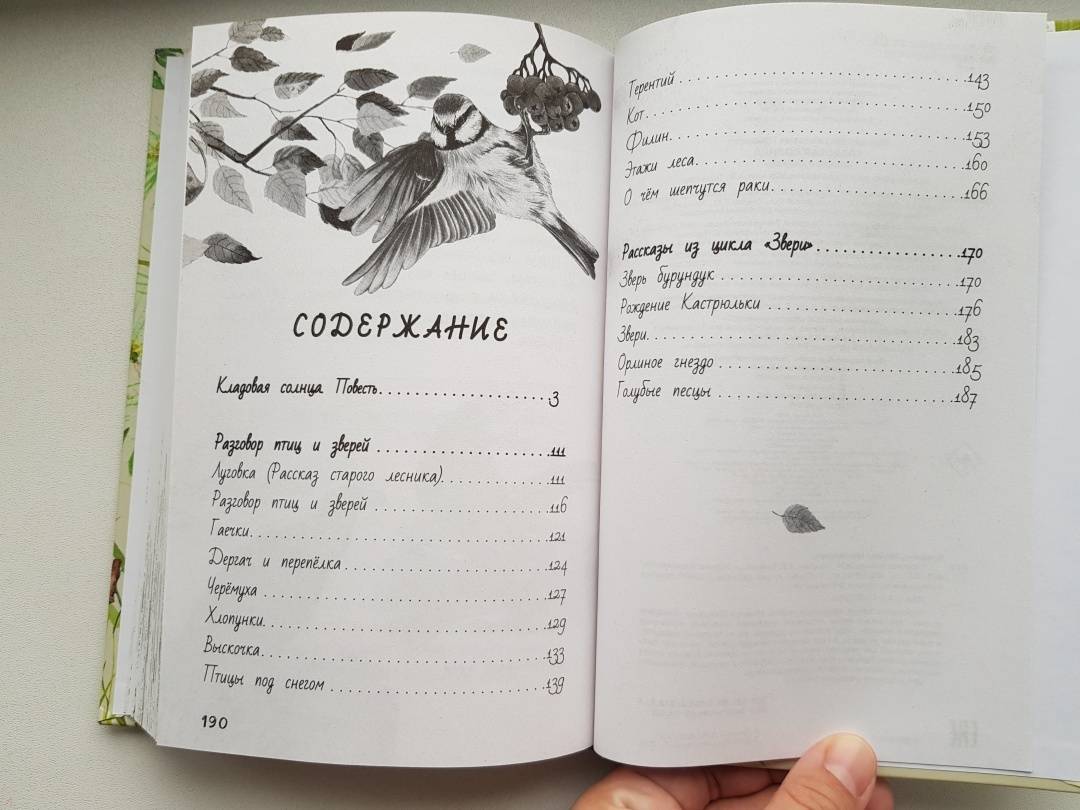 СОДЕРЖАНИЕ
Кладовая солнца Повесть. 3
Разговор птиц и зверей 111
Луговка (Рассказ старого лесника). 111
Разговор птиц и зверей 116
Гаечки. 121
Дергач и перепёлка 124
Черёмуха 127
Хлопунки. 129
Выскочка. 133
Птицы под снегом 139
190
Терентий 143
Кот. 150
Филин. 153
Этажи леса. 160
О чём шепчутся раки. 166
Рассказы из цикла «Звери» 170
Зверь бурундук 170
Рождение Кастрюльки 176
Звери. 183
Орлиное гнездо 185
Голубые песцы 187